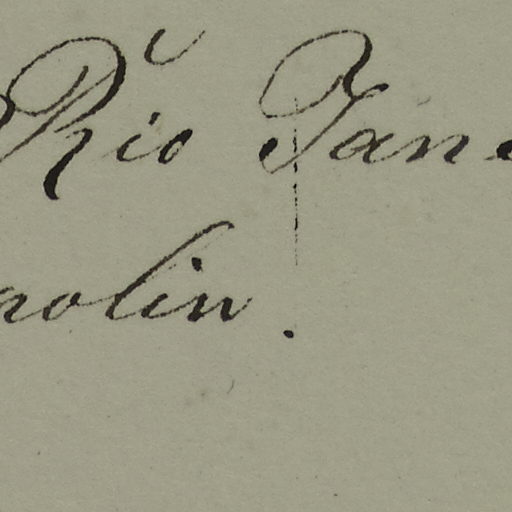 Rio Jane
nolin.